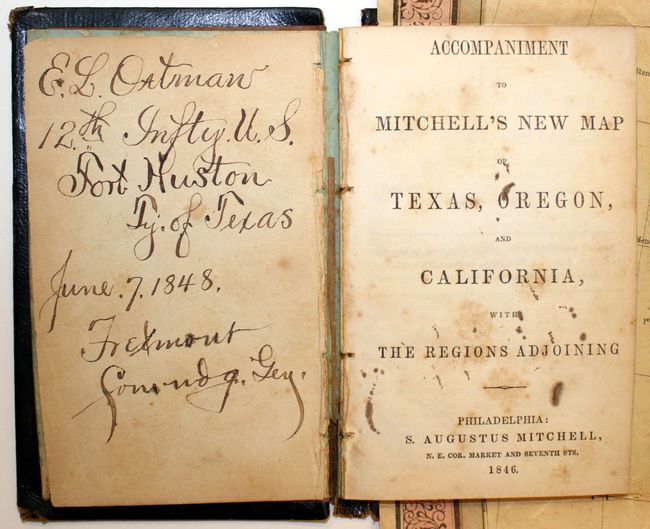 E. L. Ortman
12th Infty. U. S.
Fort Huston
Ty. of Texas
June. 7. 1848.
Frexmont
Comndg. Gen.
ACCOMPANIMENT
TO
MITCHELL'S NEW MAP
OF
TEXAS, OREGON,
AND
CALIFORNIA,
WITH
THE REGIONS ADJOINING
PHILADELPHIA:
S. AUGUSTUS MITCHELL,
N. E. COR. MARKET AND SEVENTH STS.
1846.